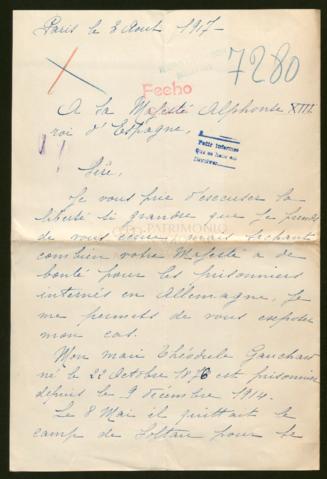 Paris le 2 Aout 1917
7280
Fecho
A Sa Majesté Alphonse XIII
roi d'Espagne,
Pedir informes
Que se hace en
Sire,
Je vous prie d'excuser la
liberté si grande que je prends
de vous écrire, mais sachant
PATRIMONIO
combien votre Majesté a de
bonté pour les prisonniers
internés en Allemagne, je
me permets de vous exposer
mon cas.
Mon mari Théodule
né le 22 Octobre 1876 est prisonnier
depuis le 9 décembre 1914.
Le 8 Mai il quittait le
camp de Soltau pour le